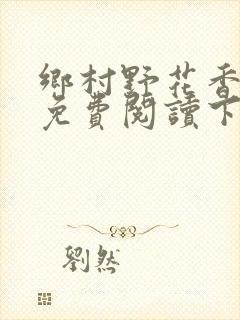 鄉村野花香
免費閱讀下
劉然